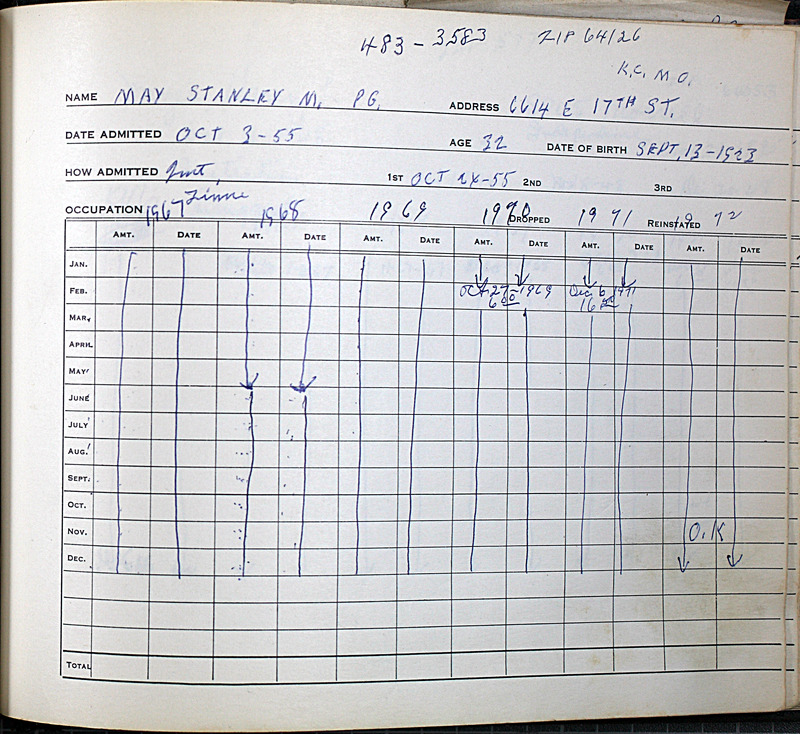 483-3583 ZIP 64126
K.C. M.O.
NAME MAY STANLEY M. PG. ADDRESS 6614 E 17TH ST.
DATE ADMITTED OCT 3-55 AGE 32 DATE OF BIRTH SEPT, 13-1923
HOW ADMITTED 1ST OCT 2X-55 2ND 3RD
OCCUPATION DROPPED REINSTATED
1967 1968 1969 1970 1971 1972
AMT. DATE AMT. DATE AMT. DATE AMT. DATE AMT. DATE AMT. DATE
JAN.
FEB. OCT. 27-1969 Dec 6 1971
6 00 16 00
MAR.
APRIL
MAY
JUNE
JULY
AUG.
SEPT.
OCT.
NOV. O.K
DEC.
TOTAL